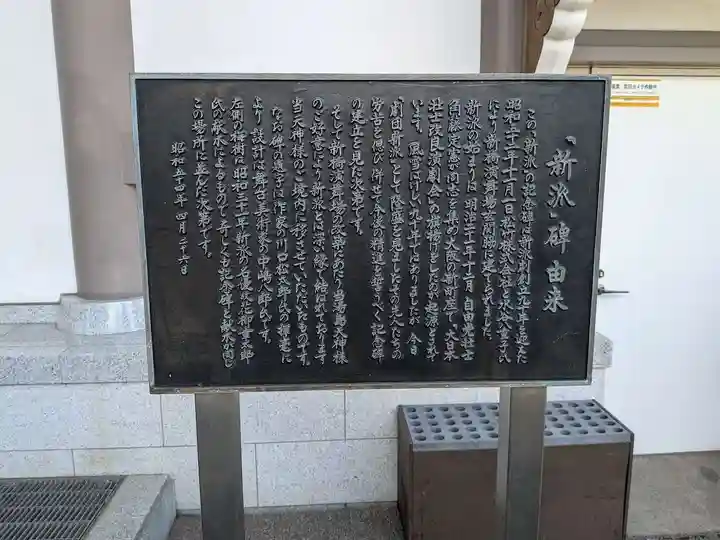 「新派」碑由来
この、新派の記念碑は新派創立九十年を迎えた
昭和五十二年十月一日松竹株式会社と大谷八重子氏
により新橋演舞場玄関脇に建てられました。
新派の始まりは明治二十一年十二月自由党壮士
角藤定憲が同志を集め大阪の新町座で、大日本
壮士改良演劇会の旗揚げをしたのが起源とされて
います。風雪はげしい九十年ではありましたが今日
「劇団新派」として隆盛を見ましたその先人たちの
労苦を偲び併せて今後の精進を誓うべく記念碑
の建立を見た次第です。
そして新橋演舞場の改築にあたり当湯島天神様
のご好意により新派とは深い縁で結ばれております
当天神様のご境内に移させていただいたものです。
なお碑の題字は作家の川口松太郎氏の揮毫に
より設計は舞台美術家の中嶋八郎氏です。
左側の梅樹は昭和三十一年新派の名優故花柳章太郎
氏の献木によるもので奇しくも記念碑と献木が同じ
この場所に並んだ次第です。
昭和五十四年四月二十六日